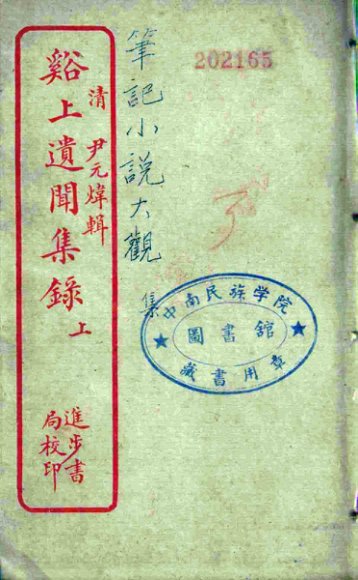 202165
筆記小說大觀
集
清 尹元煒輯
谿上遺聞集錄 上
進步書
局校印
中南民族学院
圖書舘
藏書用章